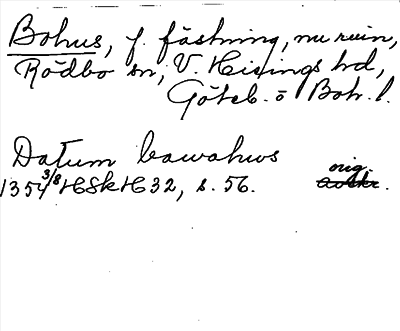 Bohus, f. fästning, nu ruin,
Rödbo sn, V. Hisings hd,
Göteb. o Boh. l.
Datum bawahws
orig.
1354 3/8 HSH 32, s. 56. avskr.